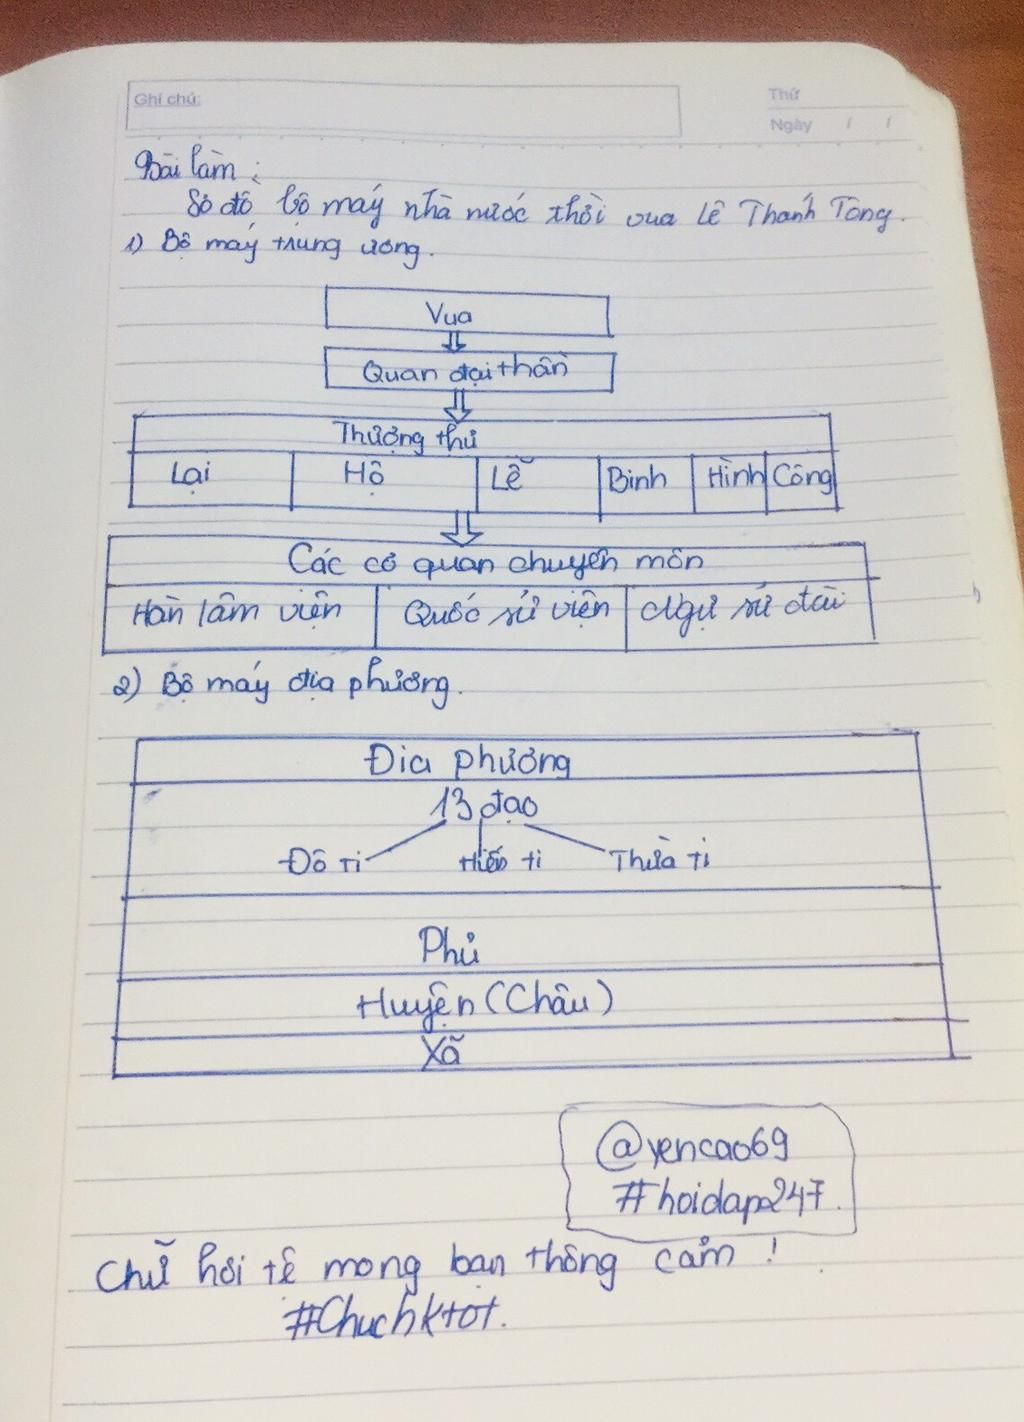 Ghi chú:
Thứ
Ngày / /
Bài làm :
Sơ đồ bộ máy nhà nước thời vua Lê Thánh Tông.
1) Bộ máy trung ương.
Vua
Quan đại thần
Thượng thư
Lại Hộ Lễ Binh Hình Công
Các cơ quan chuyên môn
Hàn lâm viện Quốc sử viện Ngự sử đài
2) Bộ máy địa phương.
Địa phương
13 đạo
Đô ti Hiến ti Thừa ti
Phủ
Huyện (Châu)
Xã
@yencao69
#hoidap247.
Chữ hơi tệ mong bạn thông cảm !
#Chuchktot.